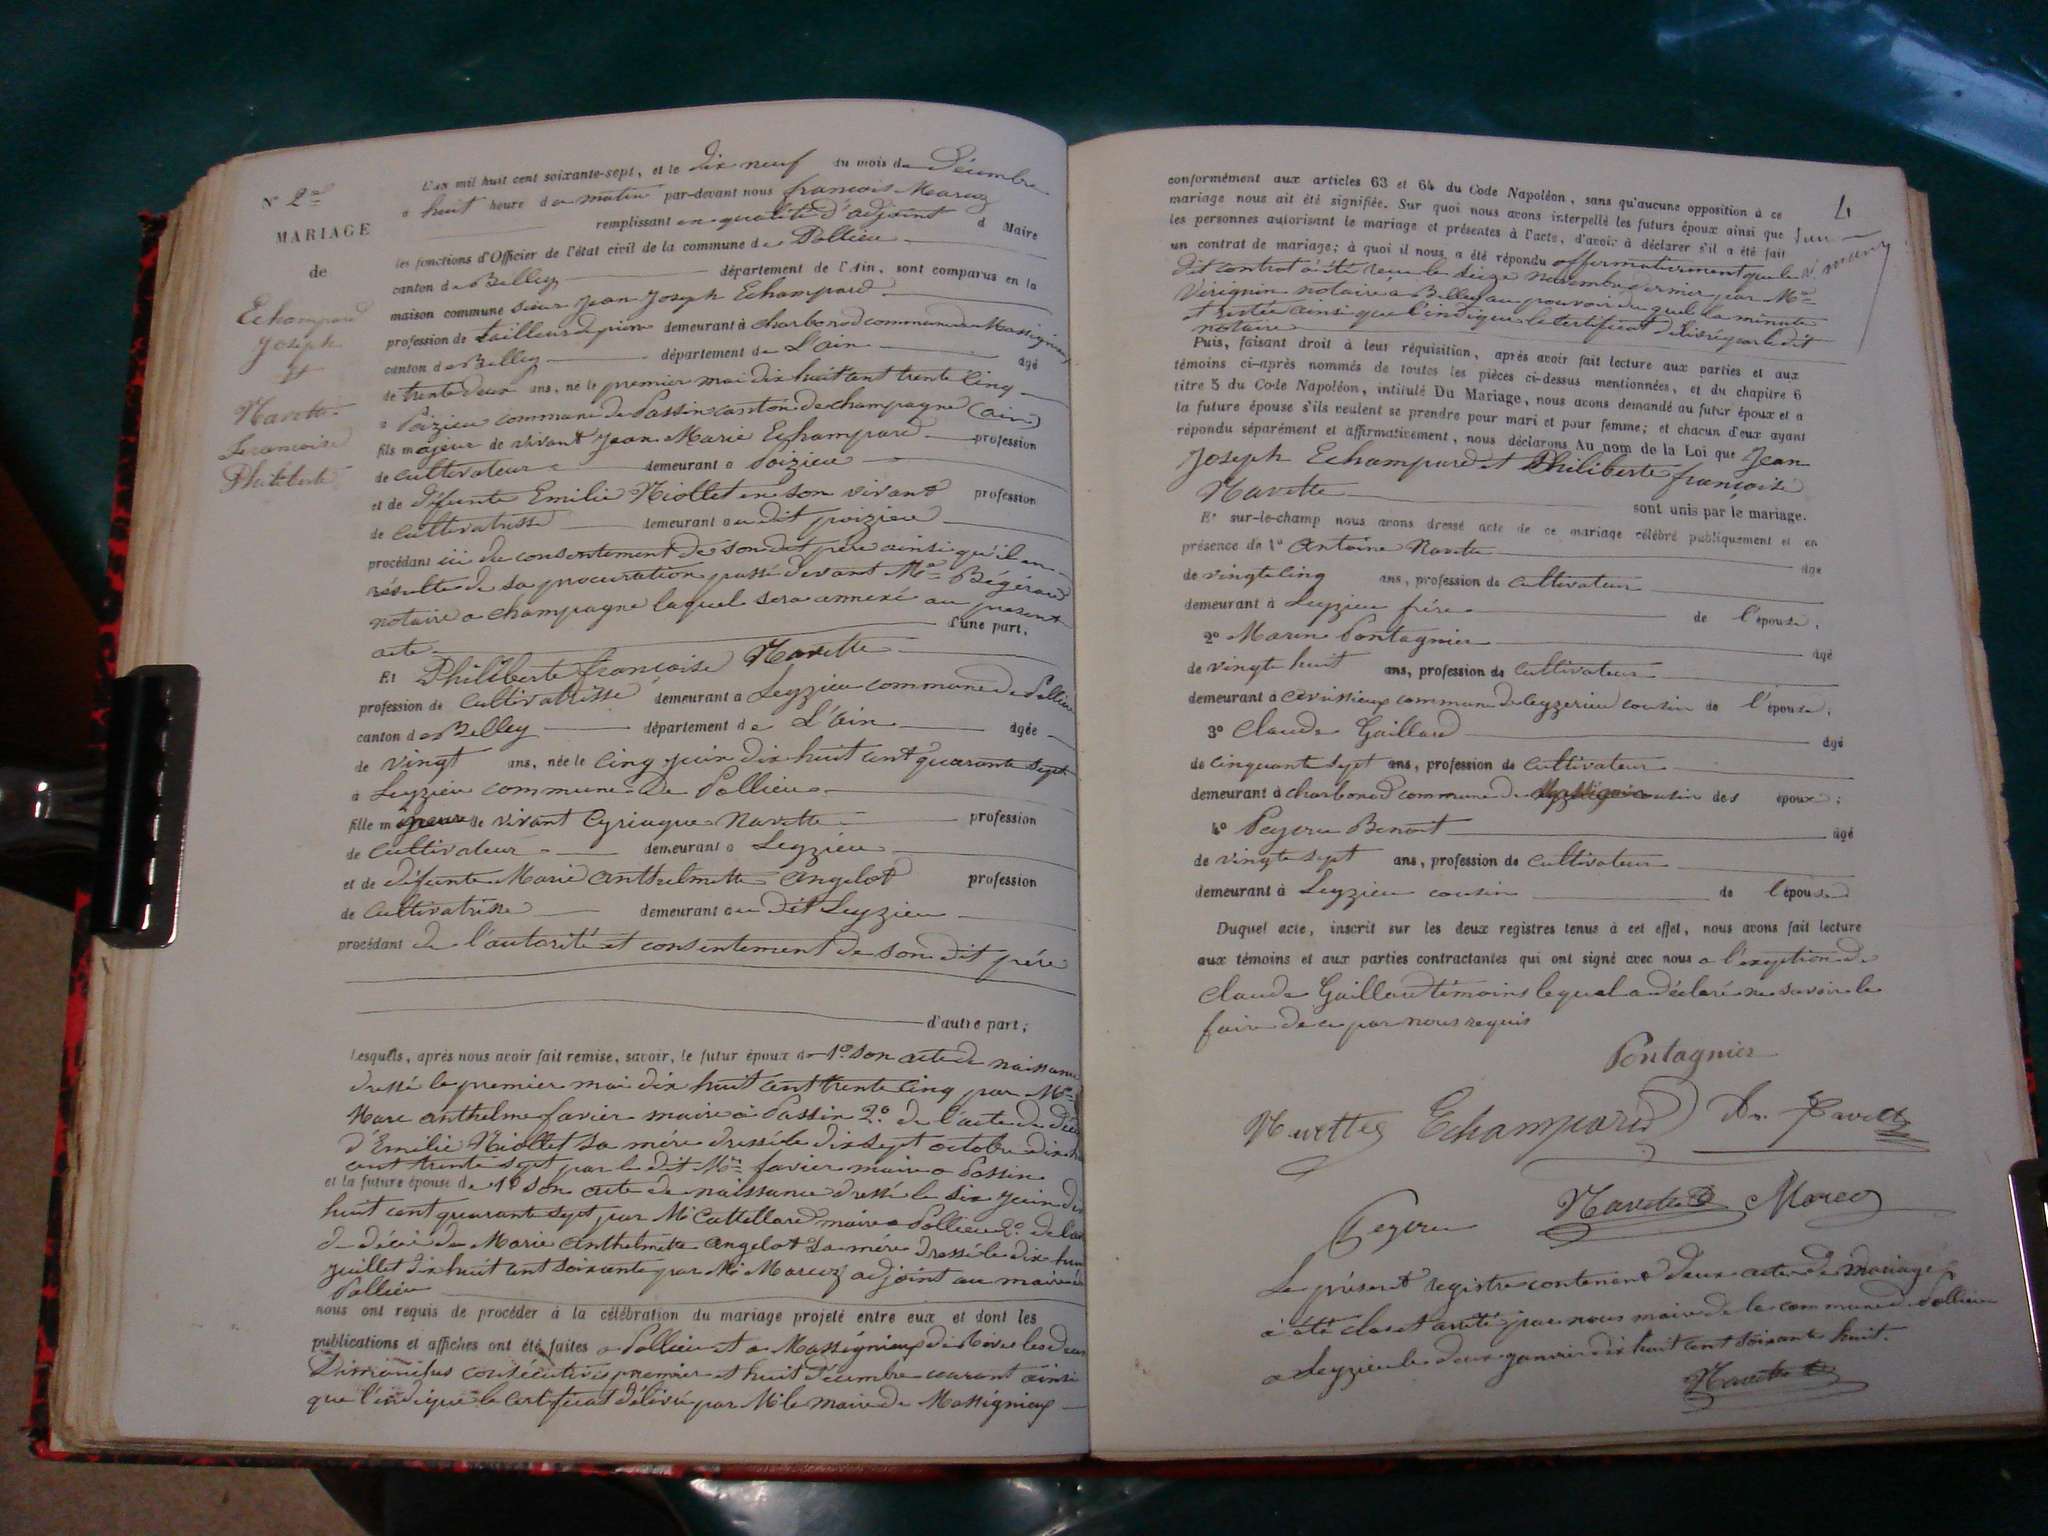 N° 2me
MARIAGE
de
Echampard
Joseph
et
Navette
Francoise
Philiberte
L'an mil huit cent soixante-sept, et le dix neuf du mois de Décembre
a huit heure du matin par-devant nous francois Marcoz
remplissant en qualité d'adjoint d Maire
les fonctions d'Officier de l'état civil de la commune de Pollieu
canton de Belley département de l'Ain, sont comparus en la
maison commune sieur Jean Joseph Echampard
profession de tailleur de pierre demeurant à charbonod commune de Massignieu
canton de Belley département de L'ain âgé
de trente deux ans, né le premier mai dix huit cent trente cinq
a Poizieu commune de Passin canton de champagne (ain)
fils majeur de vivant Jean Marie Echampard profession
de cultivateur demeurant a Poizieu
et de défunte Emilie Niollet en son vivant profession
de cultivatrisse demeurant au dit poizieu
procédant ici du consentement de son dit père ainsi qu'il en
résulte de sa procuration passé devant Me Bégérard
notaire a champagne laquel sera annexé au present
acte d'une part,
Et Philiberte françoise Navette
profession de cultivatrisse demeurant a Leyzieu commune de Pollieu
canton de Belley département de L'ain âgée
de vingt ans, née le cinq juin dix huit cent quarante sept
a Leyzieu commune de Pollieu
fille mineure de vivant Cyriaque Navette profession
de cultivateur demeurant a Leyzieu
et de défunte Marie anthelmette angelot profession
de cultivatrisse demeurant au dit Leyzieu
procédant de l'autorité et consentement de son dit père
d'autre part;
Lesquels, après nous avoir fait remise, savoir, le futur époux de 1° son acte de naissance
dressé le premier mai dix huit cent trente cinq par Mr
Marc anthelme favier maire a Passin 2° de l'acte de décè
d'Emilie Niollet sa mère dressé le dix sept octobre dix hu
cent trente sept par le dit Mr favier maire a Passin
et la future épouse de 1° son acte de naissance dressé le six juin dix
huit cent quarante sept par Mr Cattellard maire a Pollieu 2° de l'ac
de décè de Marie anthelmette angelot sa mère dressé le dix huit
juillet dix huit cent soixante par Mr Marcoz adjoint au maire de
Pollieu
nous ont requis de procéder à la célébration du mariage projeté entre eux et dont les
publications et affiches ont été faites a Pollieu et a Massignieux de Rives les deux
Dimanches consécutifs premier et huit décembre courant ainsi
que l'indique le certificat délivré par Mr le maire de Massignieux
4
conformément aux articles 63 et 64 du Code Napoléon, sans qu'aucune opposition à ce
mariage nous ait été signifiée. Sur quoi nous avons interpellé les futurs époux ainsi que
les personnes autorisant le mariage et présentes à l'acte, d'avoir à déclarer s'il a été fait
un contrat de mariage; à quoi il nous a été répondu affirmativement que le
dit contrat a été recu le seize novembre dernier par Me
Virignin notaire a Belley au pouvoir du quel la minute
est restée ainsi que l'indique le certificat délivré par le dit
notaire
Puis, faisant droit à leur réquisition, après avoir fait lecture aux parties et aux
témoins ci-après nommés de toutes les pièces ci-dessus mentionnées, et du chapitre 6
titre 5 du Code Napoléon, intitulé Du Mariage, nous avons demandé au futur époux et a
la future épouse s'ils veulent se prendre pour mari et pour femme; et chacun d'eux ayant
répondu séparément et affirmativement, nous déclarons Au nom de la Loi que Jean
Joseph Echampard et Philiberte françoise
Navette
sont unis par le mariage.
Et sur-le-champ nous avons dressé acte de ce mariage célébré publiquement et en
présence de 1° Antoine Navette âgé
de vingt cinq ans, profession de cultivateur
demeurant à Leyzieu frère de l'épouse,
2° Marin Pontagnier âgé
de vingt huit ans, profession de cultivateur
demeurant à commune de Ceyzerieu cousin de l'épouse,
3° Claude Gaillard âgé
de cinquante sept ans, profession de cultivateur
demeurant à charbonod commune de cousin des époux;
4° Peyeru Benoit âgé
de vingt sept ans, profession de cultivateur
demeurant à Leyzieu cousin de l'épouse
Duquel acte, inscrit sur les deux registres tenus à cet effet, nous avons fait lecture
aux témoins et aux parties contractantes qui ont signé avec nous a l'exception de
Claude Gaillard témoins lequel a déclaré ne savoir le
faire de ce par nous requis
Pontagnier
Navette Echampard An. Navette
Peyeru Navette Marcoz
Le présent registre contenant deux actes de mariage
a été clos et arreté par nous maire de la commune de Pollieu
a Leyzieu le deux janvier dix huit cent soixante huit.
Navette